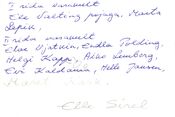 I rida vasakult
Elve Valteng pojaga, Marta
Lepik,
II rida vasakult
Elve Vjatkin, Endla Polding,
Helgi Kapp, Aldo Lemberg,
Evi Kaldama, Helle Jansen,
Elle Sirel